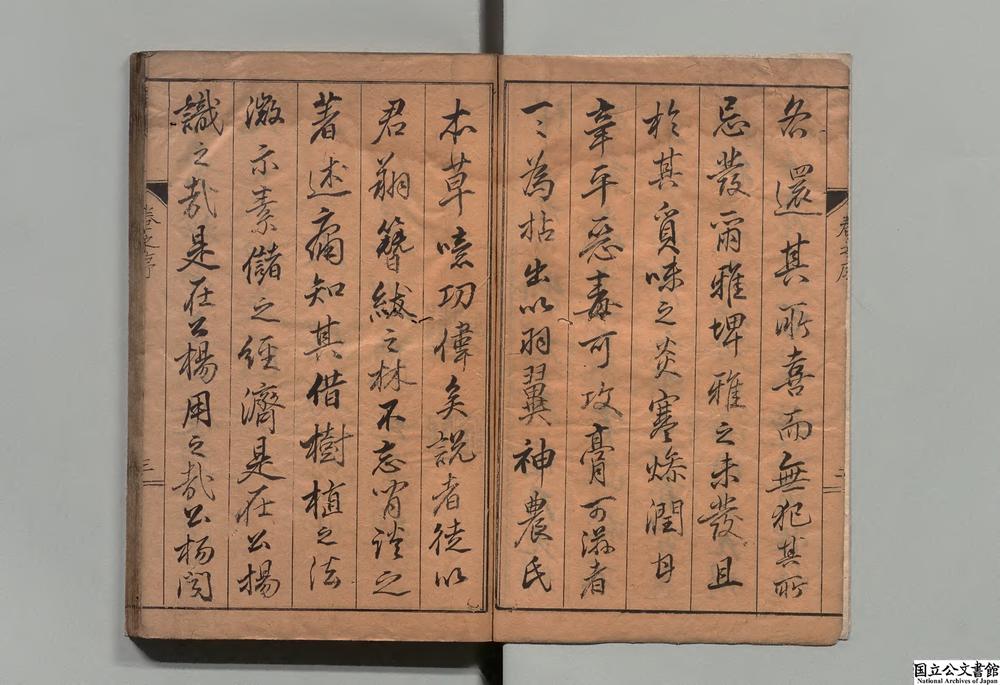 各還其所喜而無犯其所
忌發爾雅埤雅之未發且
於其質味之炎寒燥潤甘
辛平惡毒可攻膏可滋者
一〻為拈出以羽翼神農氏
本草噫功偉矣說者徒以
君翱簪紱之林不忘談之
著述庸知其借樹植之法
微示素儲之經濟是在公楊
識之哉是在公楊用之哉公楊
三
国立公文書館
National Archives of Japan